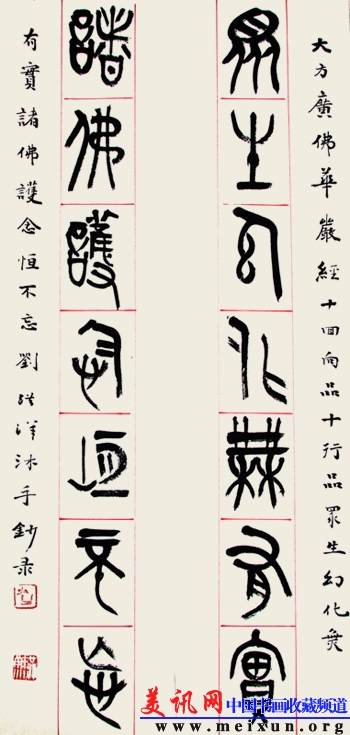 大方廣佛華嚴經十回向品十行品眾生幻化無
眾生幻化無有實
諸佛護念恒不忘
有實諸佛護念恒不忘劉洋沐手鈔录
美讯网
中国书画收藏频道
www.meixun.org